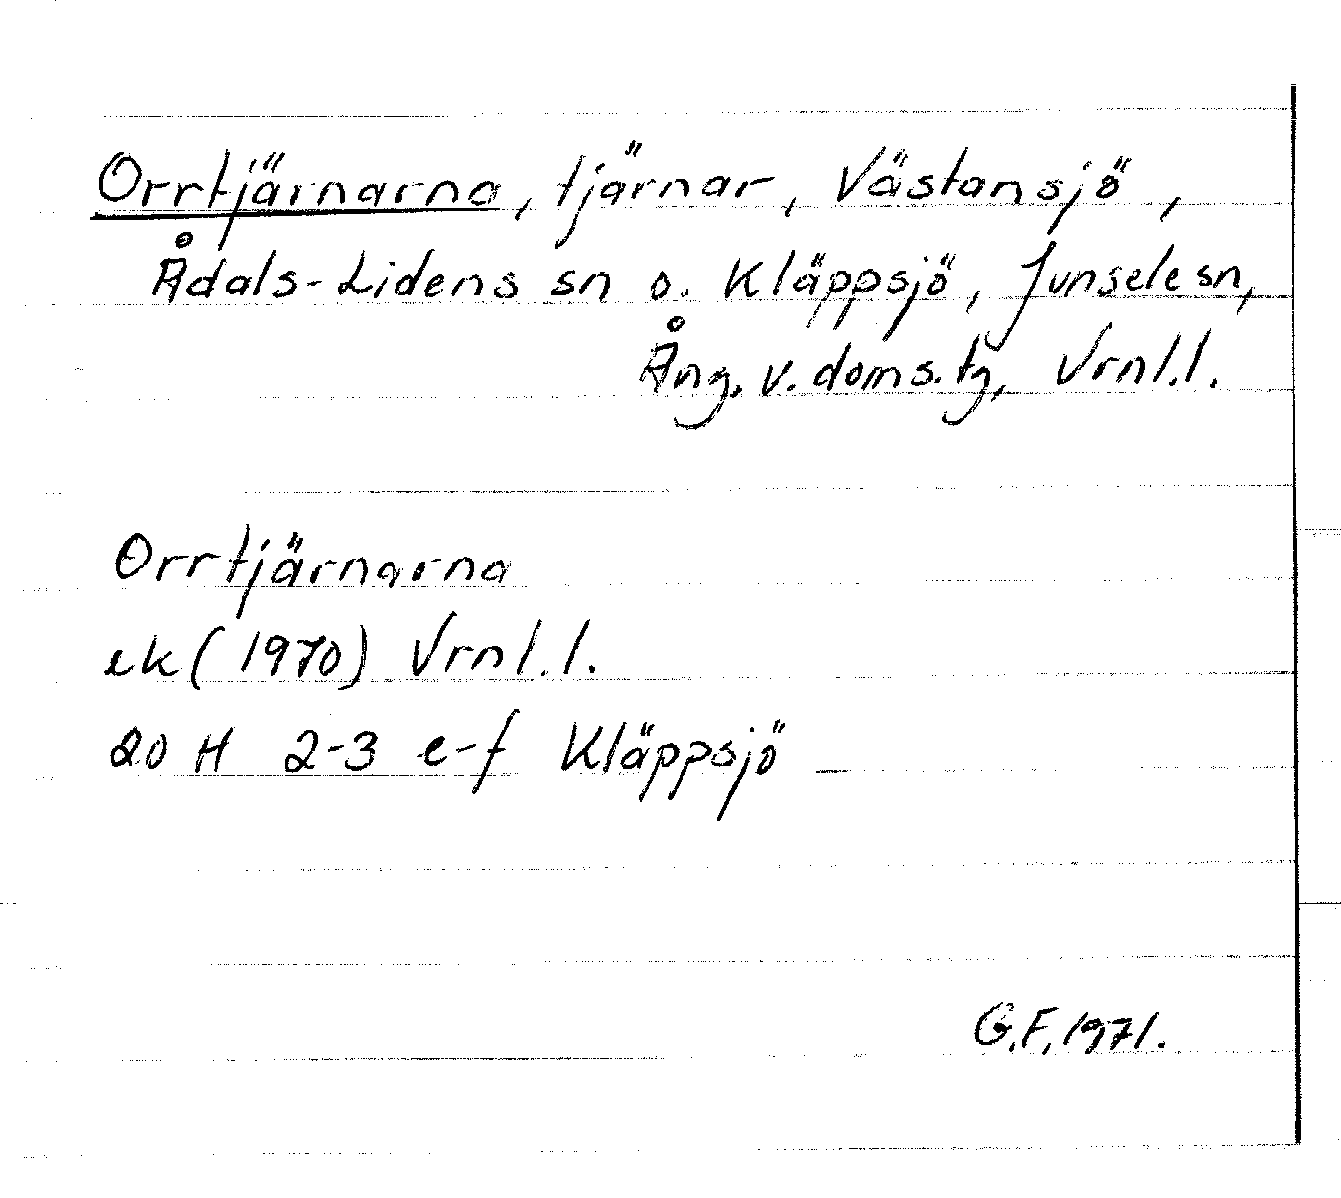 Orrtjärnarna, tjärnar, Västansjö,
Ådals-Lidens sn o. Kläppsjö, Junsele sn,
Ång. v. doms. tg, Vrnl.l.
Orrtjärnarna
ek (1970) Vrnl.l.
20 H 2-3 e-f Kläppsjö
G.F. 1971.